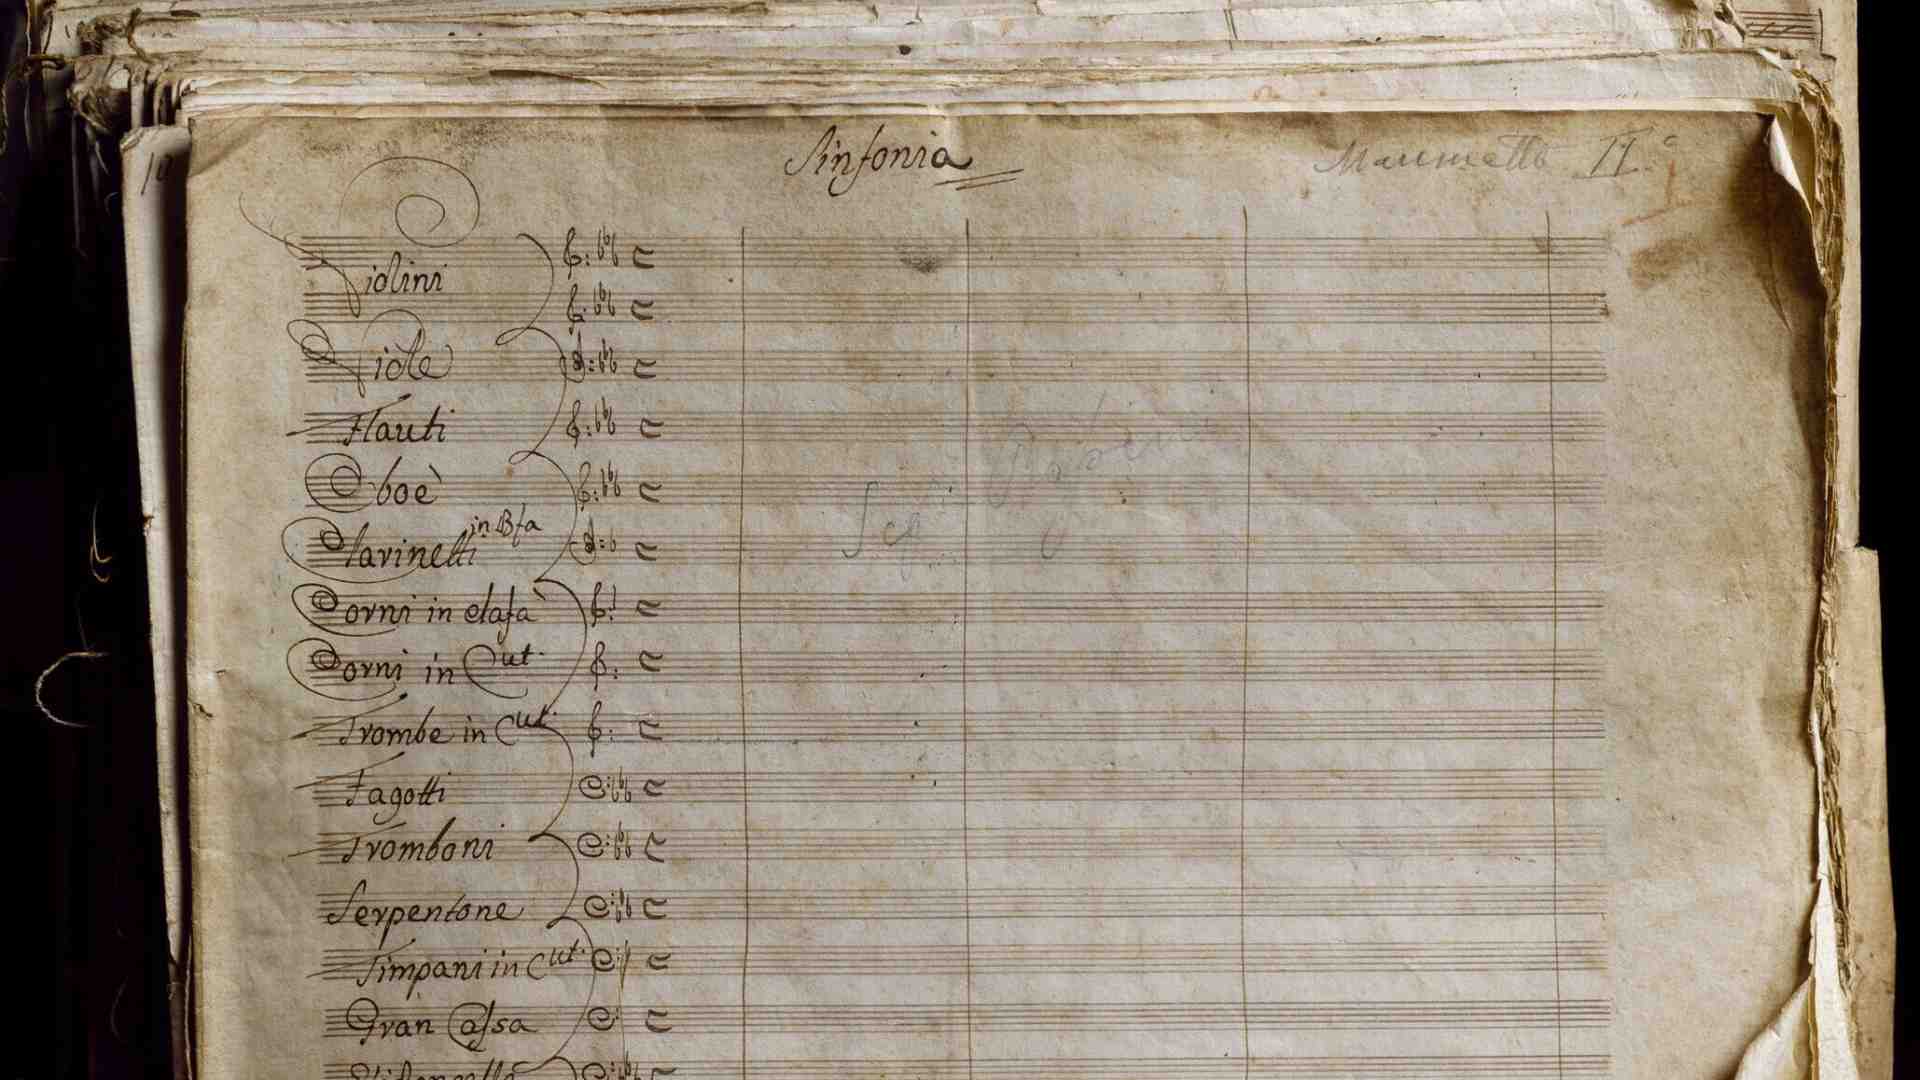 Sinfonia
Maumetto II.º
10
Violini
Viole
Flauti
Oboè
Clarinetti in Bfa
Corni in elafà
Corni in Cut.
Trombe in Cut.
Fagotti
Tromboni
Serpentone
Timpani in Cut.
Gran Cassa